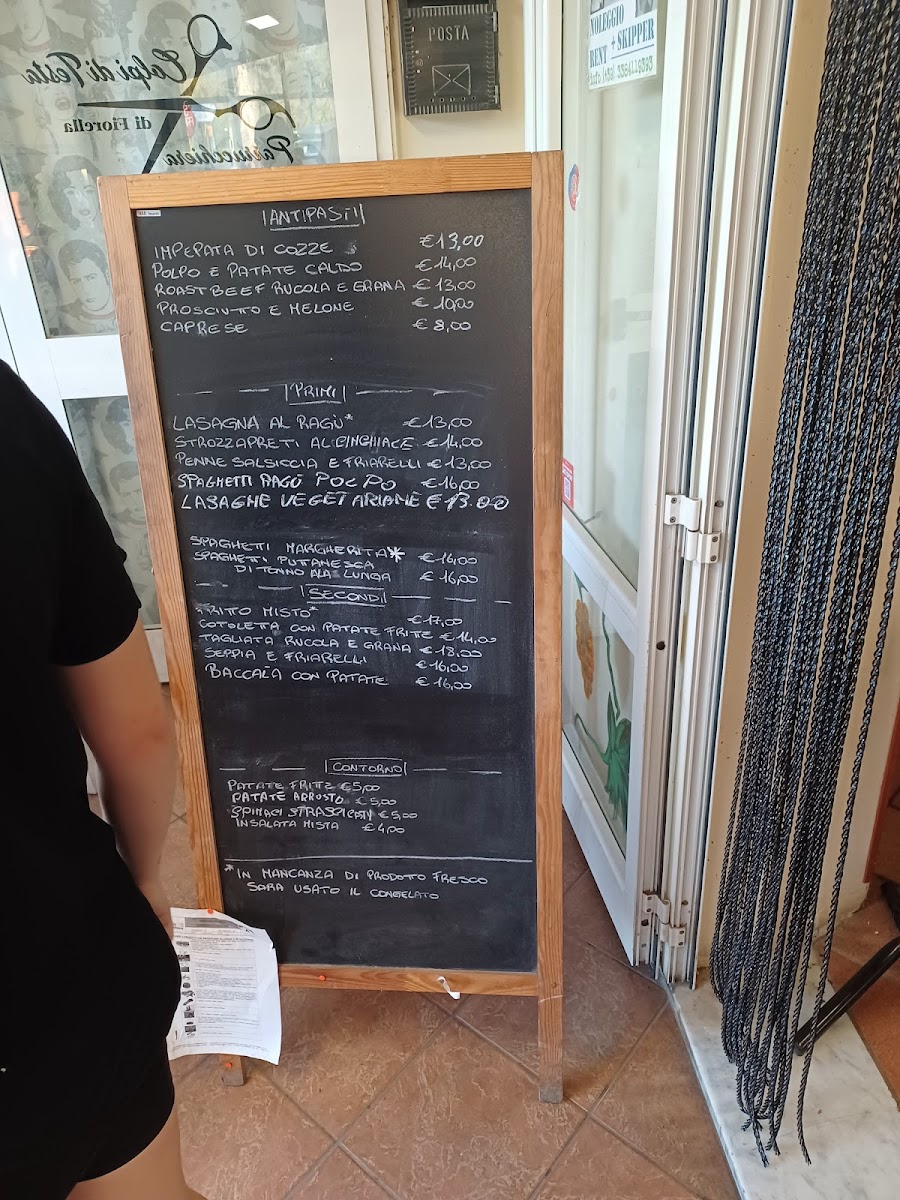 Colpi di Testa
di Fiorella
Parrucchiera
POSTA
NOLEGGIO
RENT + SKIPPER
ANTIPASTI
IMPEPATA DI COZZE €13,00
POLPO E PATATE CALDO €14,00
ROAST BEEF RUCOLA E GRANA €13,00
PROSCIUTTO E MELONE €10,00
CAPRESE €8,00
PRIMI
LASAGNA AL RAGÙ* €13,00
STROZZAPRETI AL CINGHIALE €14,00
PENNE SALSICCIA E FRIARELLI €13,00
SPAGHETTI RAGÙ POLPO €16,00
LASAGNE VEGETARIANE €13.00
SPAGHETTI MARGHERITA* €16,00
SPAGHETTI PUTTANESCA
DI TONNO ALA LUNGA €16,00
SECONDI
FRITTO MISTO* €17,00
COTOLETTA CON PATATE FRITE €14,00
TAGLIATA RUCOLA E GRANA €18,00
SEPPIA E FRIARELLI €16,00
BACCALÀ CON PATATE €16,00
CONTORNO
PATATE FRITE €5,00
PATATE ARROSTO €5,00
SPINACI STRASCICATI €5,00
INSALATA MISTA €4,00
*IN MANCANZA DI PRODOTO FRESCO
SARA USATO IL CONGELATO